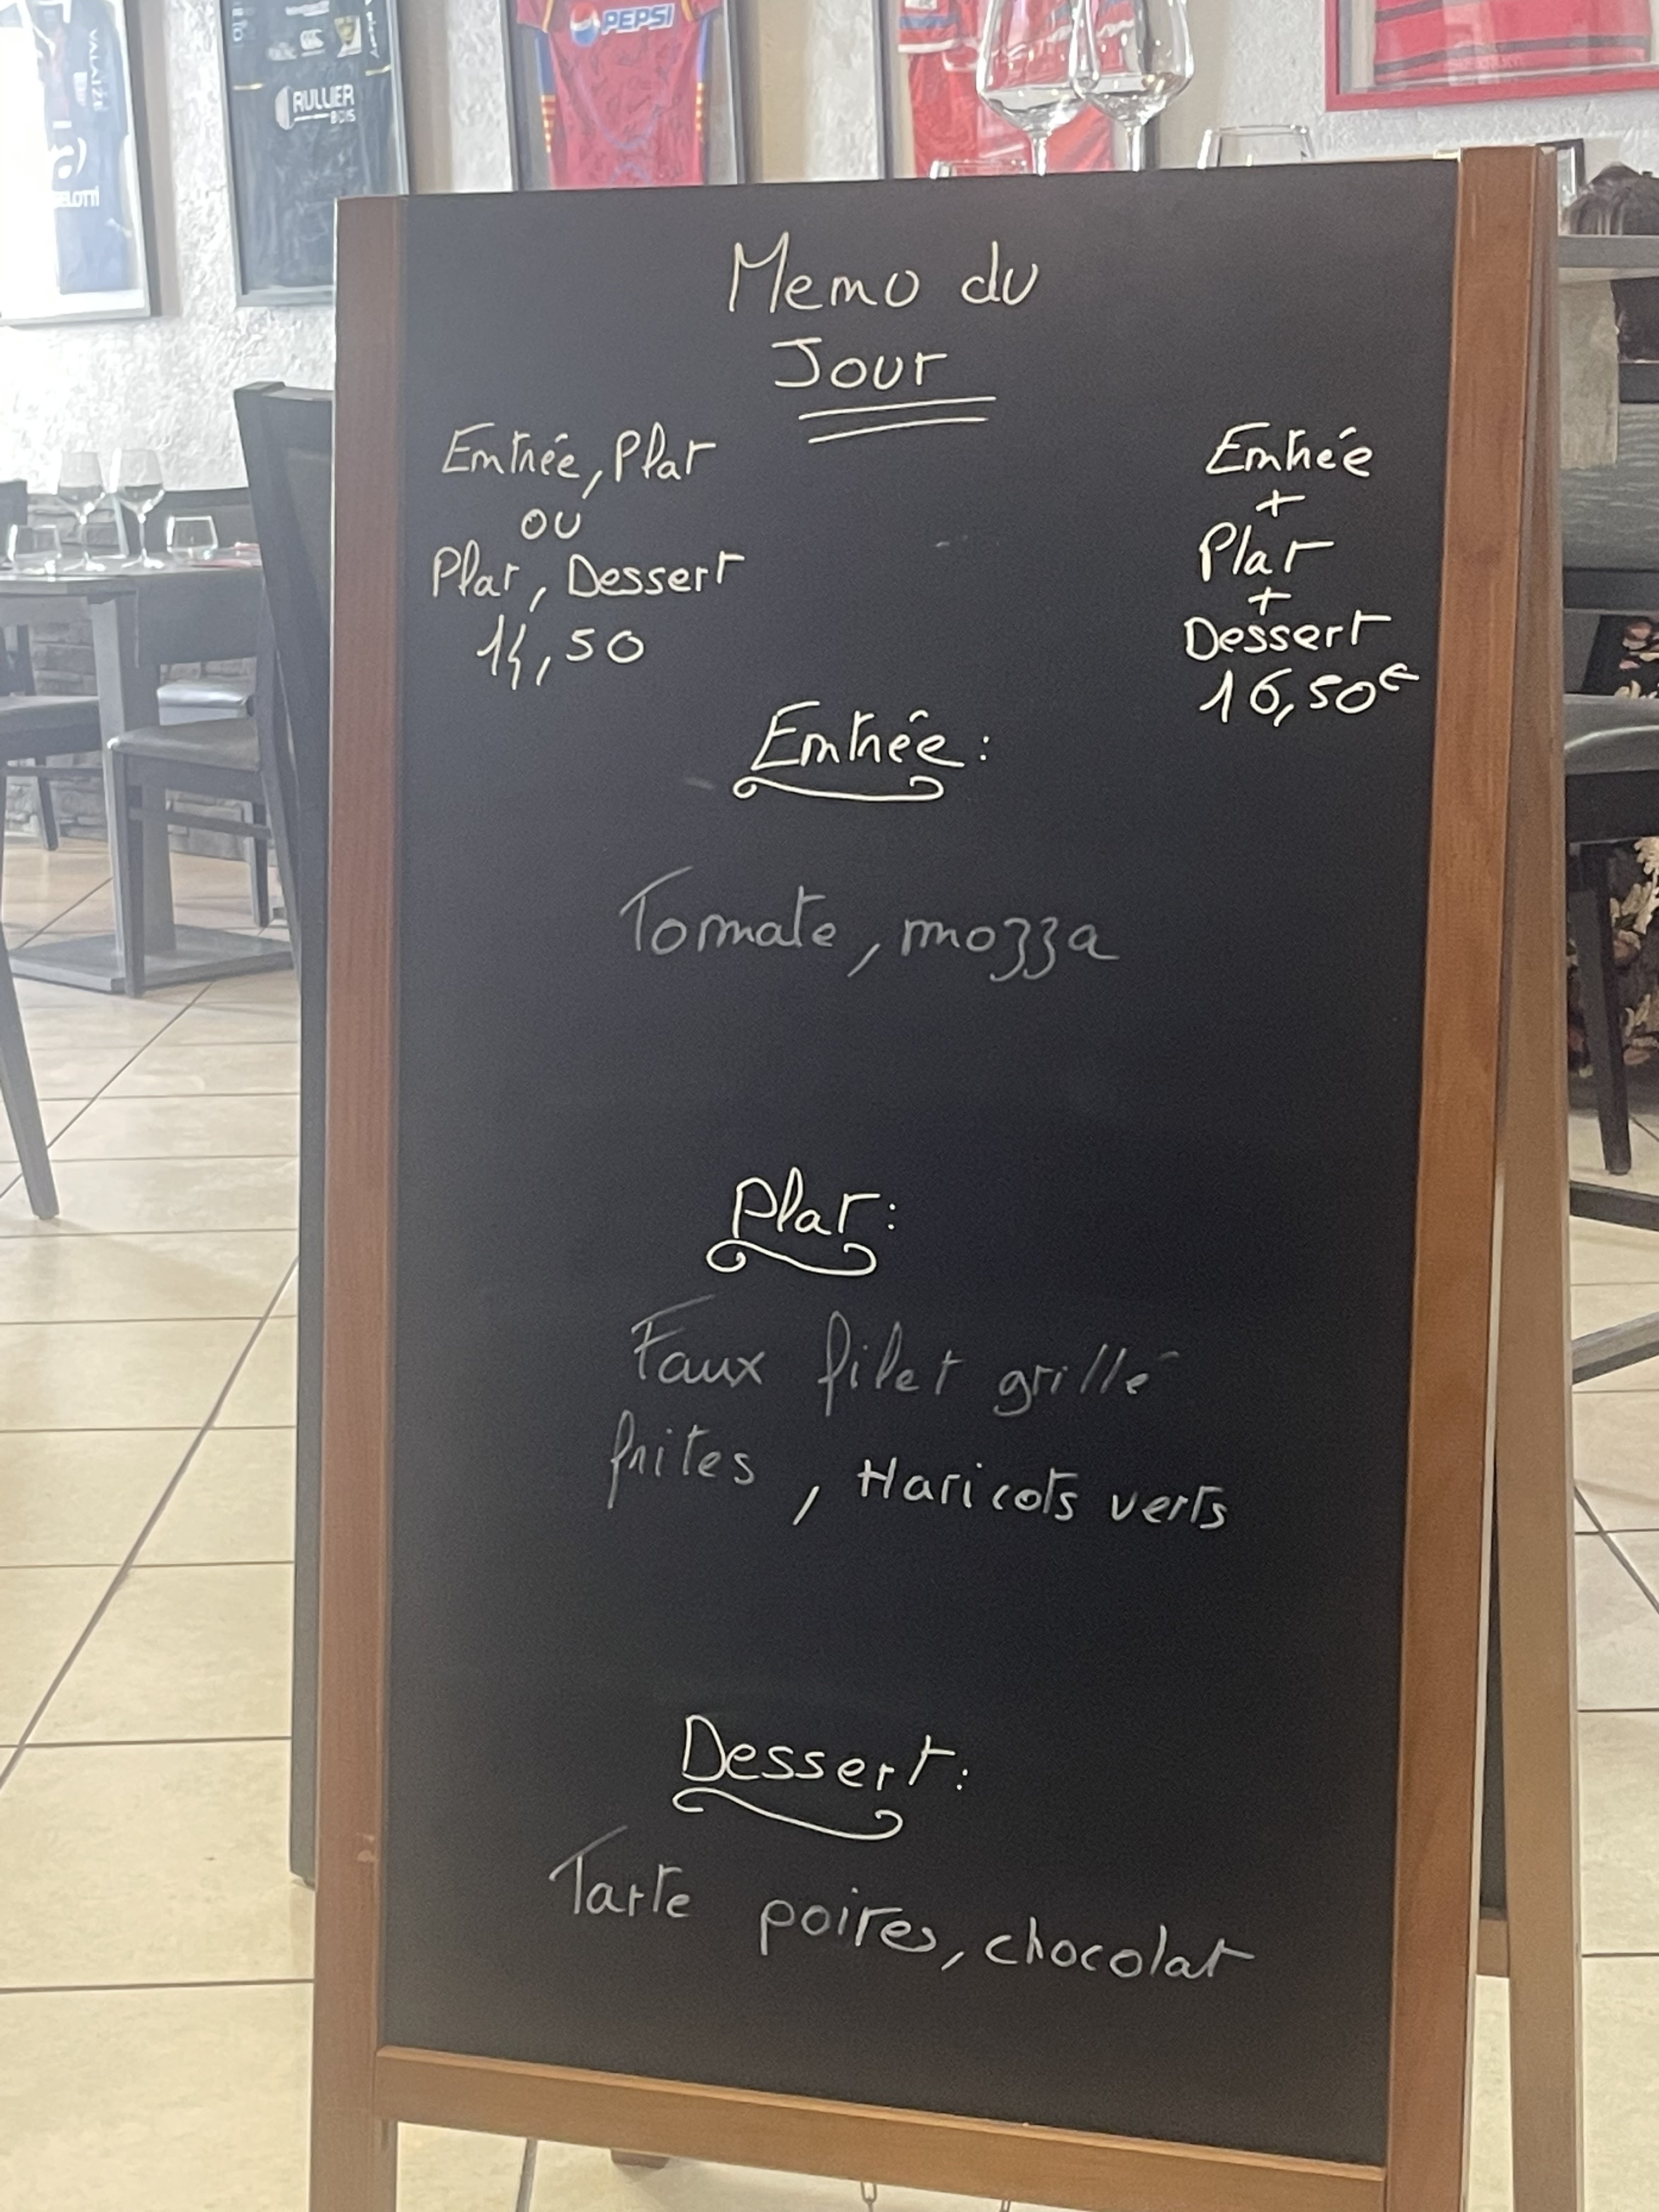 PEPSI
RULLIER
BOIS
Menu du
Jour
Entrée, Plat
ou
Plat, Dessert
14,50
Entrée
+
Plat
+
Dessert
16,50€
Entrée :
Tomate, mozza
Plat :
Faux filet grillé
frites, Haricots verts
Dessert :
Tarte poires, chocolat